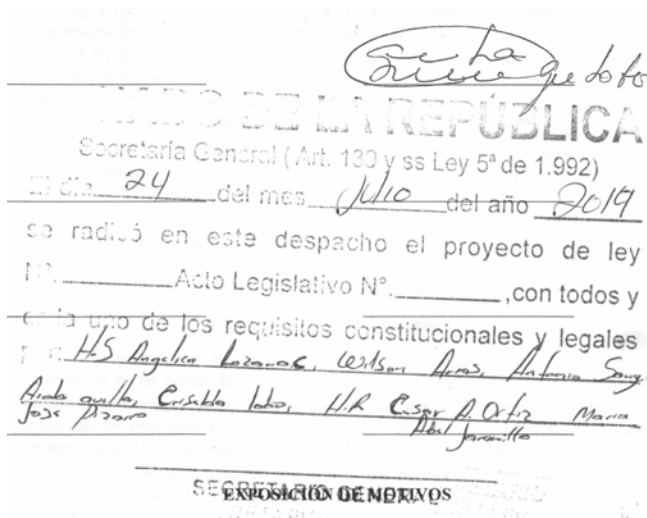 DE LA REPÚBLICA
Secretaría General (Art. 139 y ss Ley 5ª de 1.992)
El día 24 del mes Julio del año 2019
se radicó en este despacho el proyecto de ley
Nº. Acto Legislativo Nº. , con todos y
cada uno de los requisitos constitucionales y legales
H.S Angelica Lozano C, Wilson Arias, Antonio
Aida Criselda Lobo, H.R Cesar A. Ortiz Maria
Jose Pizarro Abel Jaramillo
SECRETARIO GENERAL
EXPOSICIÓN DE MOTIVOS